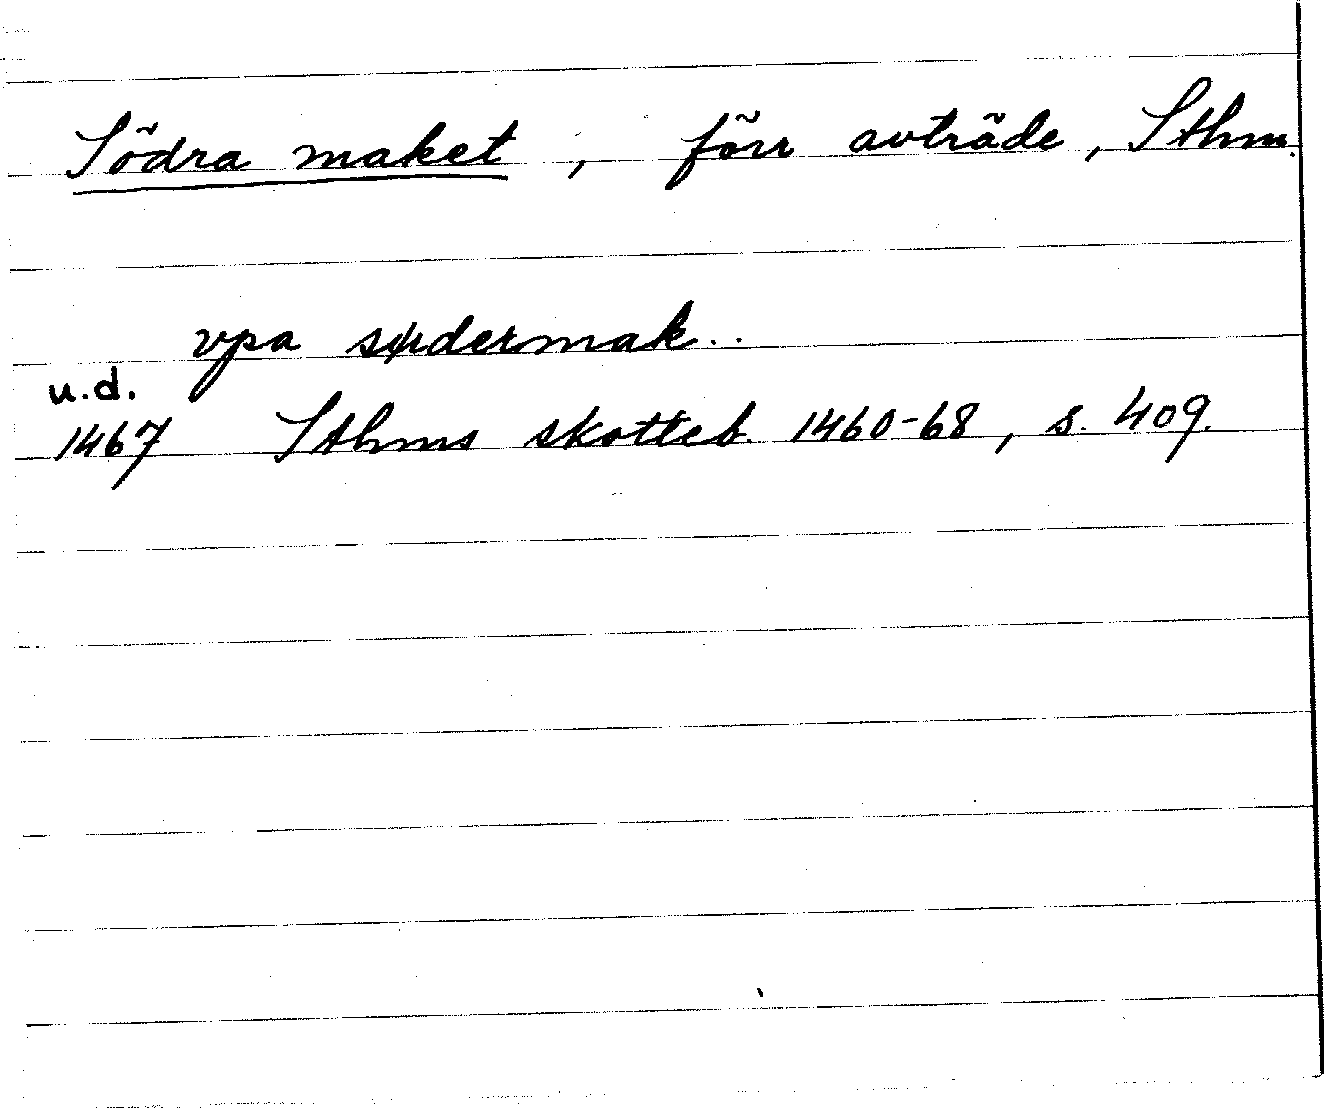 Södra maket, förr avträde, Sthm.
vpa sødermak..
u.d.
1467 Sthms skotteb. 1460-68, s. 409.